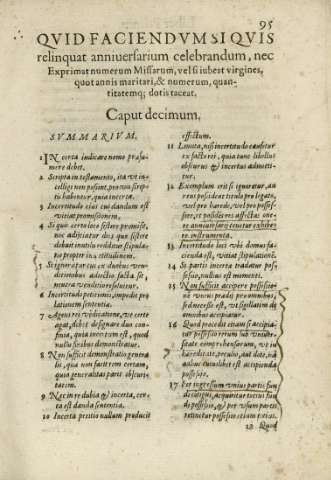 95
QVID FACIENDVM SI QVIS
relinquat anniuersarium celebrandum, nec
Exprimat numerum Missarum, vel si iubeat virgines,
quot annis maritari, & numerum, quan-
titatemq; dotis taceat.
Caput decimum.
SVMMARIVM.
1 IN certa indicare nemo præsu-
mere debet.
2 Scripta in testamento, ita vt in-
telligi non possint, pro non scrip-
tis habentur, quia incerta.
3 Incertitudo eius cui dandum est
vitiat promissionem.
4 Si quo certo loco sistere promise,
nec adijciatur dies quando
debeat inutilis redditur stipula-
tio propter incertitudinem.
5 Si
venditionem adiecto facta sit
6 Incertitudo petitionis, impedit pro
lationem sententiæ.
7 Agens rei vendicatione, vt certe
agat, debet designare duos con-
fines, quia incertum est, quod
nullis finibus demonstratur.
8 Non sufficit demonstratio genera-
lis, quia non facit rem certam,
quia generalitas parit obscuri-
tatem.
9 Nec in re dubia & incerta, cer-
ta est danda sententia.
10 Incerta petitio nullum producit
effectum.
11 Limita, nisi incertitudo causetur
ex facto rei, quia tunc libellus
obscurus & incertus admitti-
tur.
12 Exemplum erit si ignoretur, an
reus possideat titulo pro legato,
vel pro hærede, vel pro posses-
sore,
instrumenta.
13 Incertitudo loci vbi domus fa-
cienda est, vitiat stipulationem.
14 Si partis incerta tradatur pos-
sessio, nullius est momenti.
15 Non sufficit accipere possessio-
nem vnius prædij pro omnibus,
sed necesse est, vt omnium
omnibus accipiatur.
16 Quod procedit etiam si accipia-
tur possessio rerum sub vniuer-
sitate comprehensarum, vt in
hæreditate, peculio, aut dote, nā
adhuc cuiuslibet est accipienda
possessio.
17 Per ingressum vnius partis fun-
di acquiritur totius fun-
di possessio, & per vsum partis
retinetur possessio etiam totius.
18 Quod